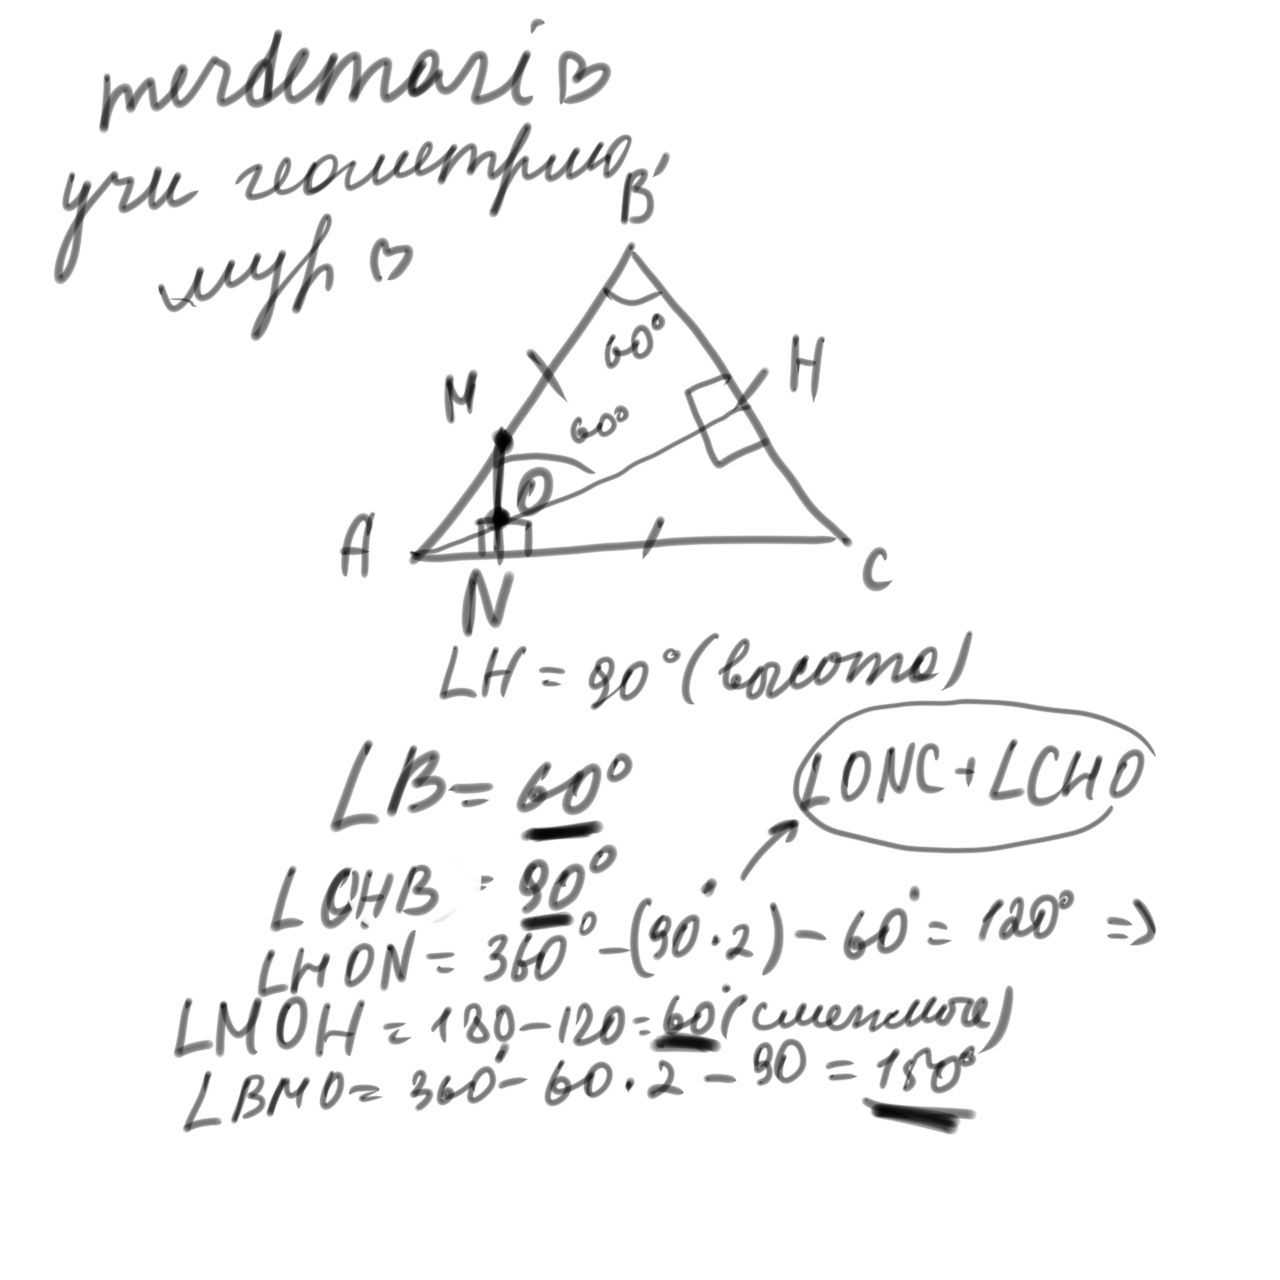 merdemari ♡
учи геометрию,
мур ♡
B
60°
H
M
60°
O
A
N
C
∠H = 90° (высота)
∠B = 60°
∠ONC + ∠CHO
∠OHB = 90°
∠HON = 360° - (90°·2) - 60° = 120° =>
∠MOH = 180 - 120 = 60° (смежные)
∠BMO = 360° - 60·2 - 90 = 150°